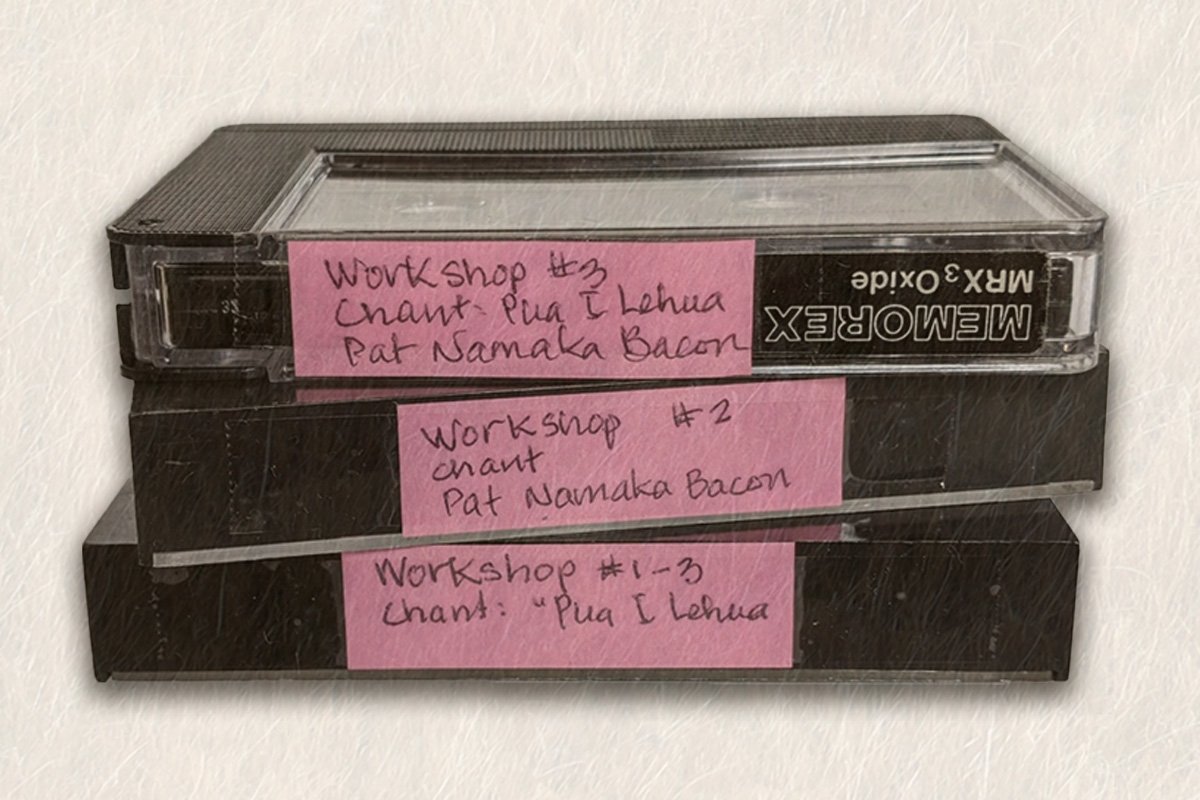 Workshop #3
Chant: Pua I Lehua
Pat Namaka Bacon
MEMOREX
MRX3 Oxide
Workshop #2
chant
Pat Namaka Bacon
Workshop #1-3
Chant: "Pua I Lehua